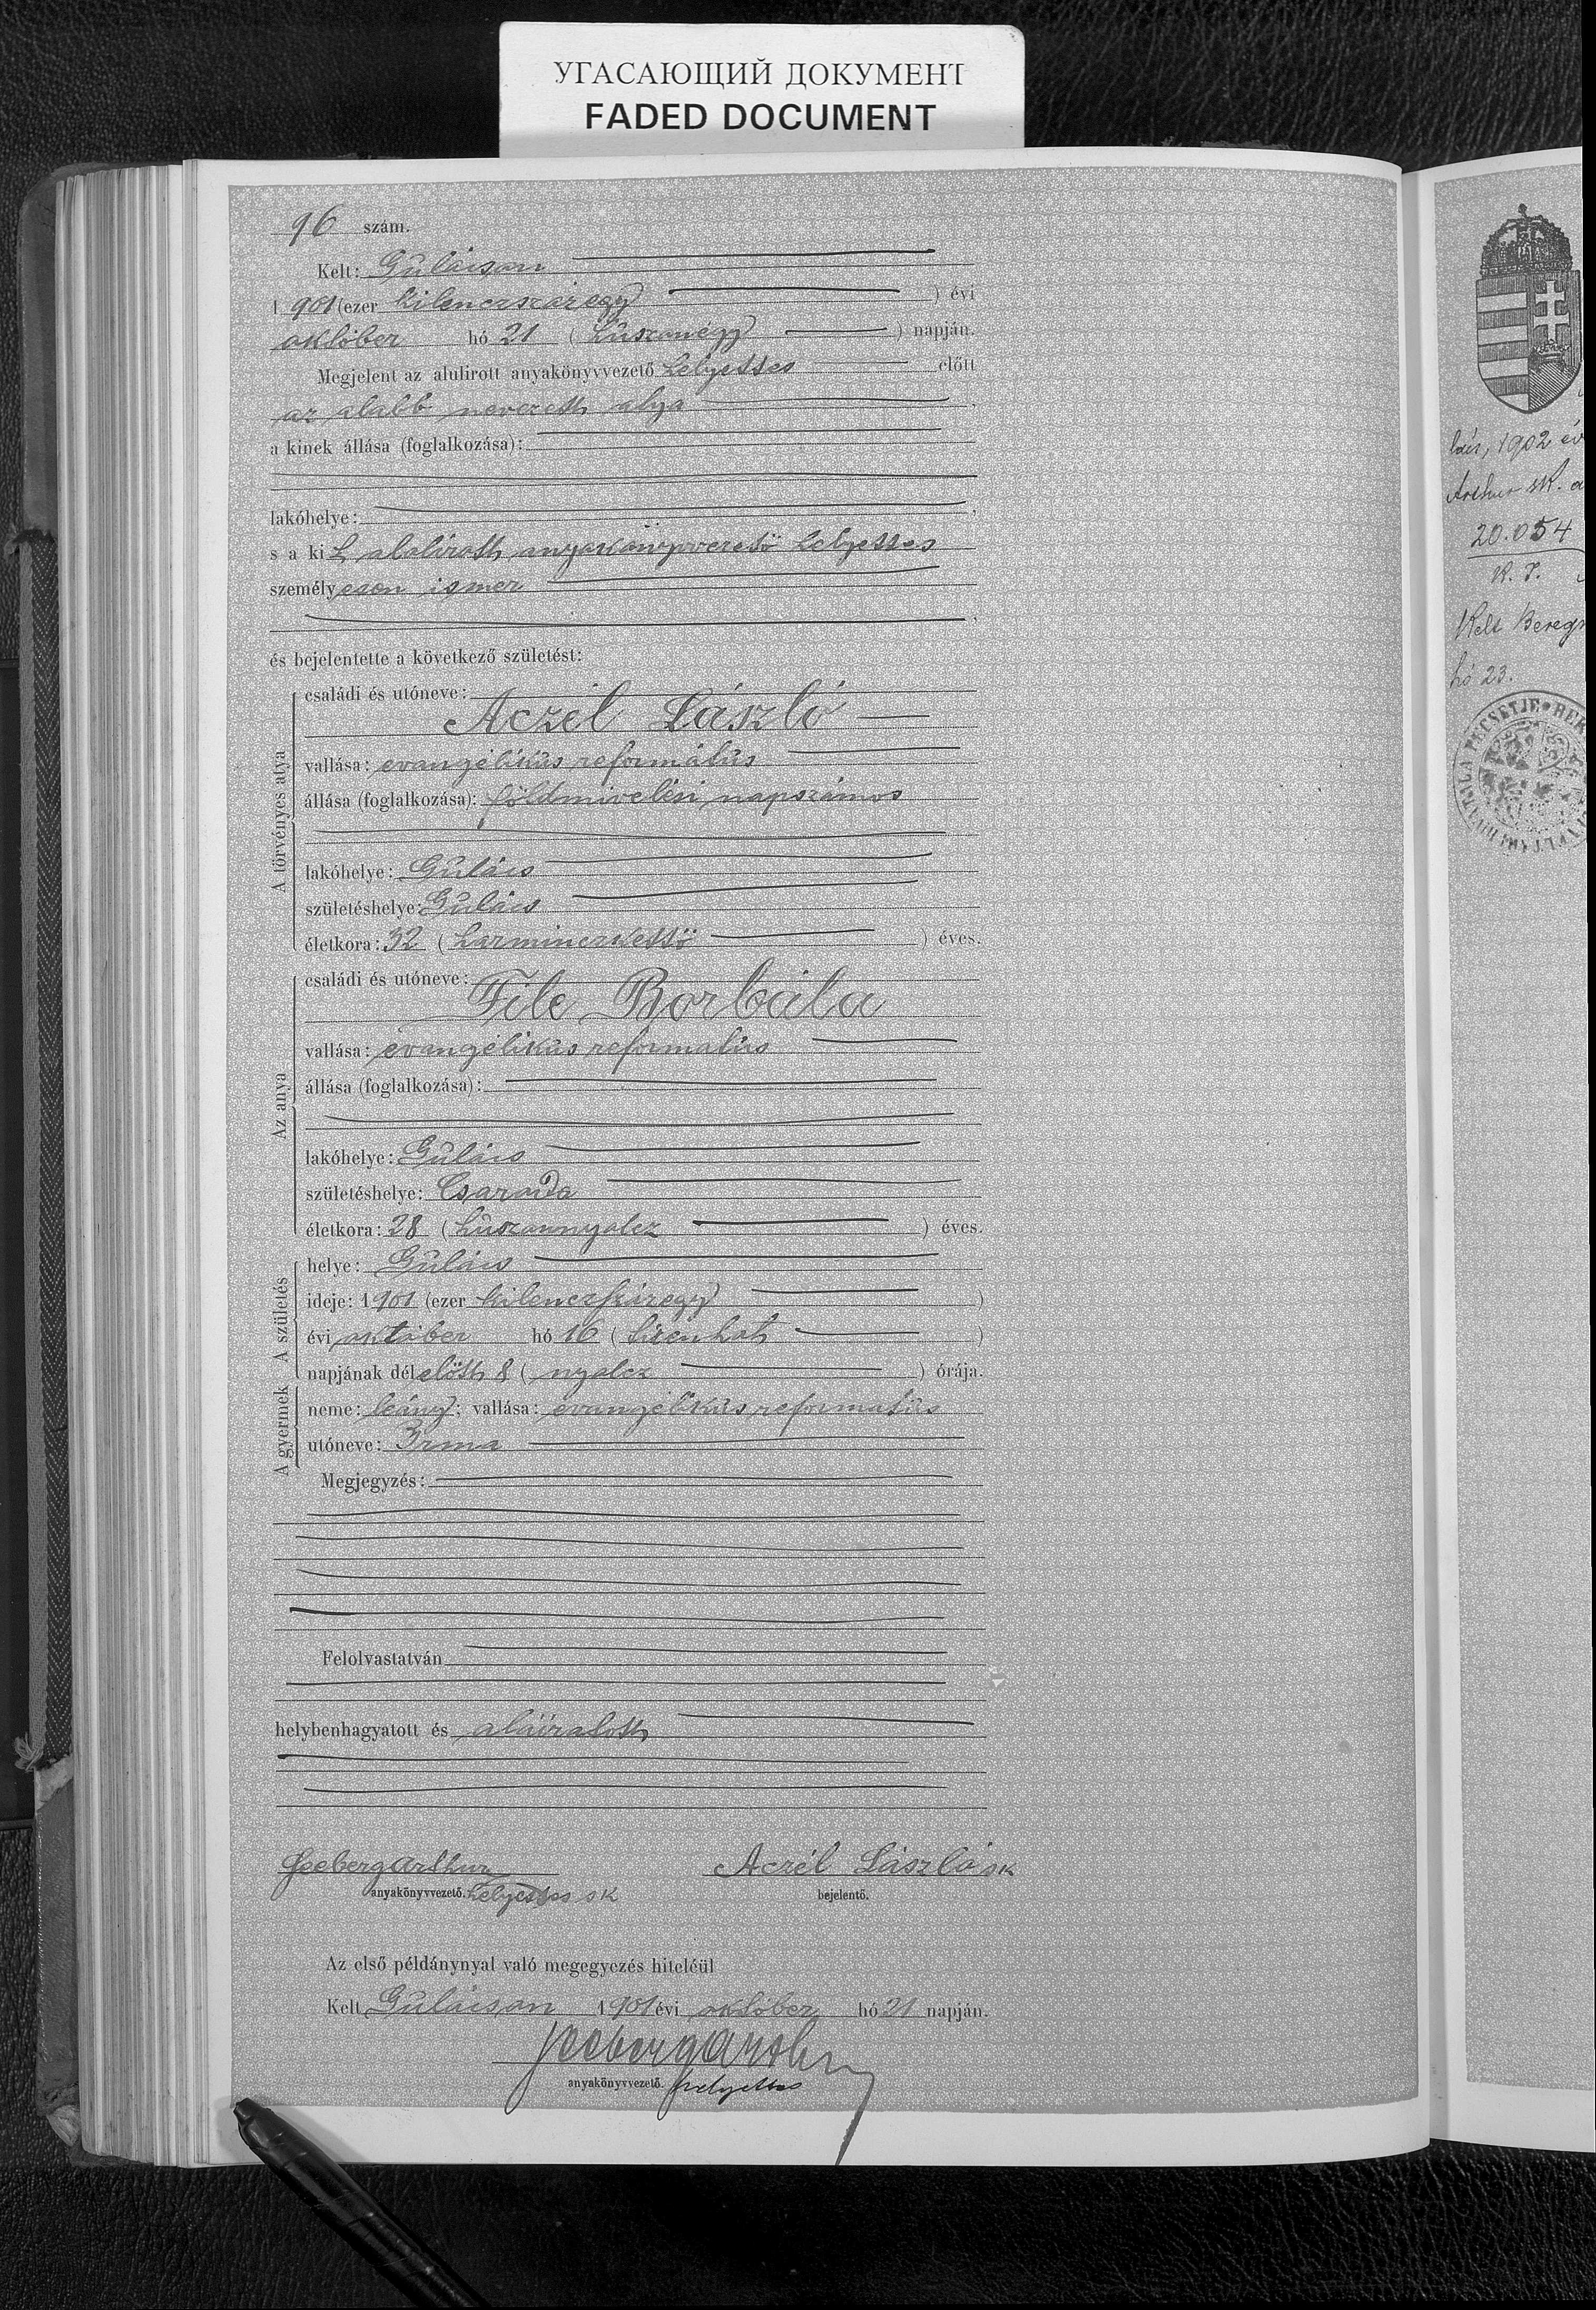 УГАСАЮЩИЙ ДОКУМЕНТ
FADED DOCUMENT
96 szám.
Kelt: Gulácson
1901 (ezer kilenczszázegy) évi
október hó 21 (huszonegy) napján.
Megjelent az alulirott anyakönyvvezető helyettes előtt
az alább nevezett atya
a kinek állása (foglalkozása):
lakóhelye:
s a kit alulirott anyakönyvvezető helyettes
személyesen ismer
és bejelentette a következő születést:
A törvényes atya
családi és utóneve:
Aczél László
vallása: evangélikus református
állása (foglalkozása): földmivelési napszámos
lakóhelye: Gulács
születéshelye: Gulács
életkora: 32 (harminczkettő) éves.
Az anya
családi és utóneve:
File Borbála
vallása: evangélikus református
állása (foglalkozása):
lakóhelye: Gulács
születéshelye: Csaroda
életkora: 28 (huszonnyolcz) éves.
A születés
helye: Gulács
ideje: 1901 (ezer kilenczszázegy)
évi október hó 16 (tizenhat)
napjának délelőtt 8 (nyolcz) órája.
A gyermek
neme: leány; vallása: evangélikus református
utóneve: Irma
Megjegyzés:
Felolvastatván
helybenhagyatott és aláiratott
Arthur Aczél László sk
anyakönyvvezető. helyettes sk bejelentő.
Az első példánynyal való megegyezés hiteléül
Kelt Gulácson 1901 évi október hó 21 napján.
anyakönyvvezető. helyettes
1902 év
Arthur sk. a
20.054
Kelt Beregs
hó 23.